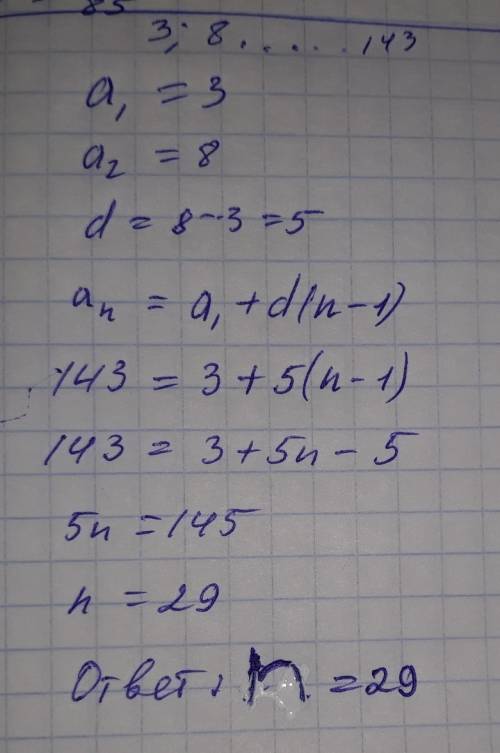 85
3; 8 . . . . . . 143
a₁ = 3
a₂ = 8
d = 8-3 = 5
aₙ = a₁ + d(n-1)
143 = 3 + 5(n-1)
143 = 3 + 5n - 5
5n = 145
n = 29
Ответ: n = 29